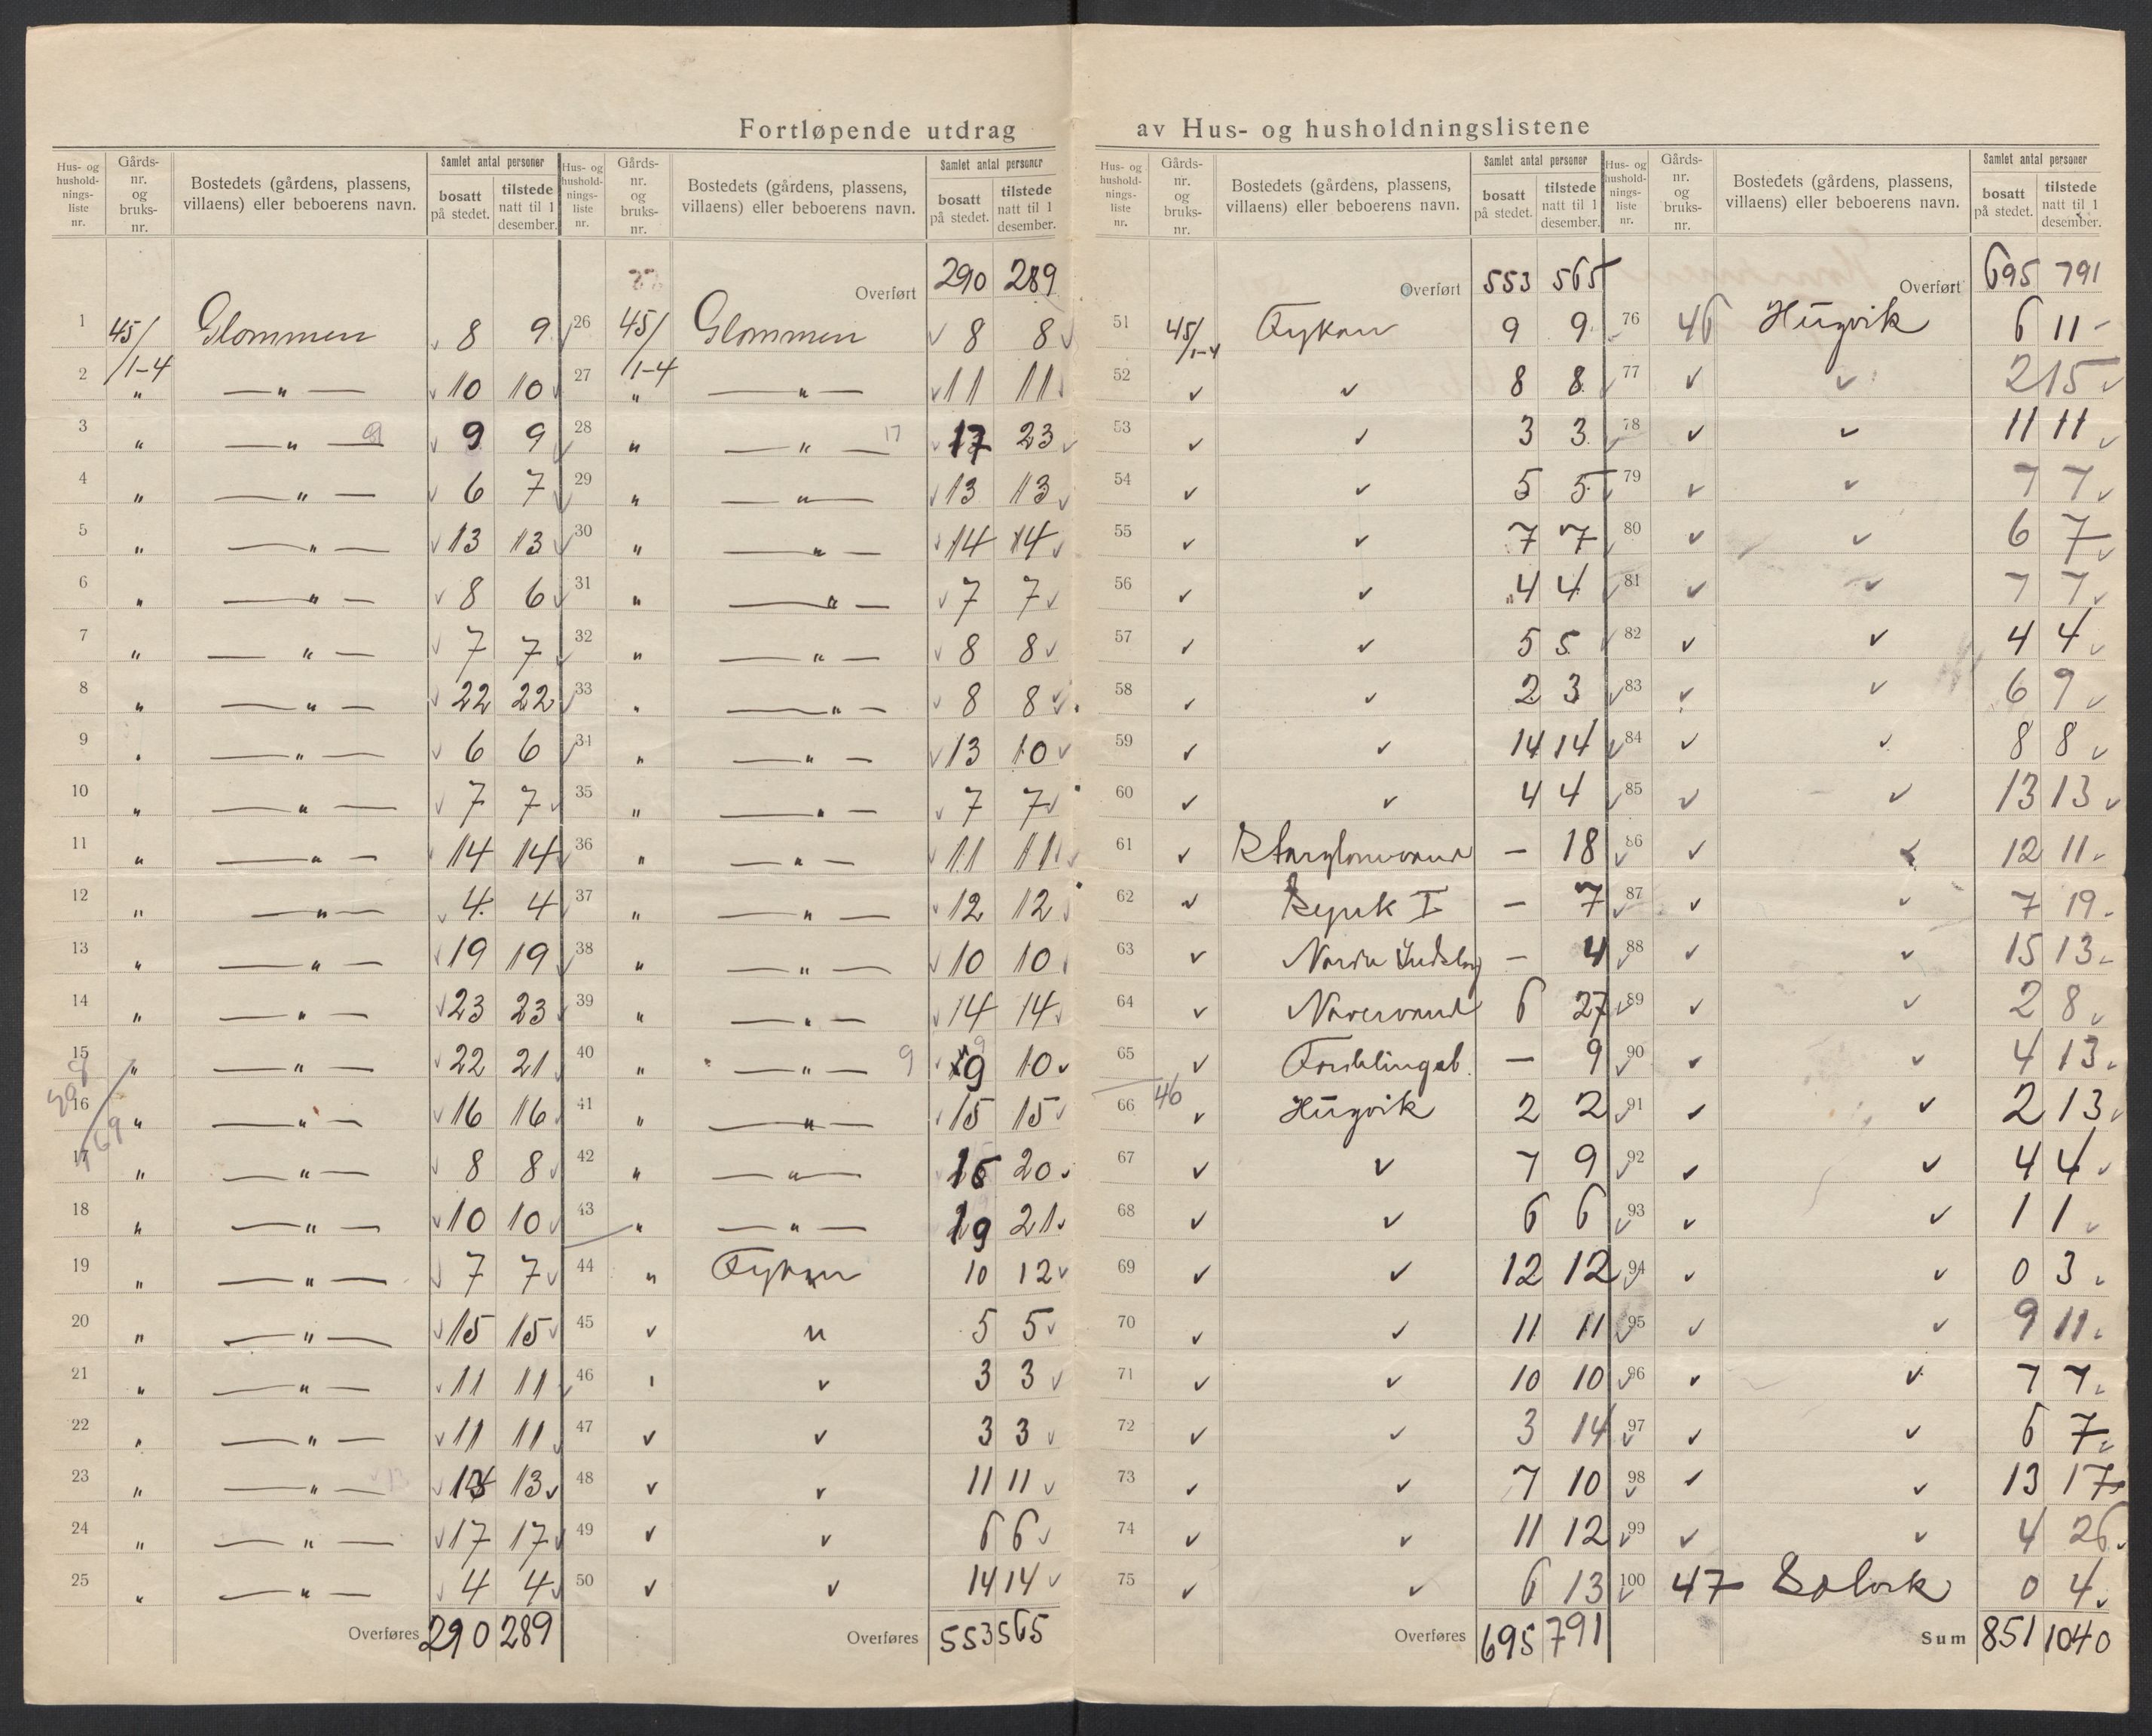 Fortløpende utdrag av Hus- og husholdningslistene
Hus- og husholdnings-liste nr. | Gårds-nr. og bruks-nr. | Bostedets (gårdens, plassens, villaens) eller beboerens navn. | Samlet antal personer bosatt på stedet. | tilstede natt til 1 desember.
1 45/1-4 Glommen 8 9
2 " —"— 10 10
3 " —"— 9 9 9
4 " —"— 6 7
5 " —"— 13 13
6 " —"— 8 6
7 " —"— 7 7
8 " —"— 22 22
9 " —"— 6 6
10 " —"— 7 7
11 " —"— 14 14
12 " —"— 4 4
13 " —"— 19 19
14 " —"— 23 23
15 " —"— 22 21
16 " —"— 16 16
17 " —"— 8 8
18 " —"— 10 10
19 " —"— 7 7
20 " —"— 15 15
21 " —"— 11 11
22 " —"— 11 11
23 " —"— 13 13 13
24 " —"— 17 17
25 " —"— 4 4
Overføres 290 289
Hus- og husholdnings-liste nr. | Gårds-nr. og bruks-nr. | Bostedets (gårdens, plassens, villaens) eller beboerens navn. | Samlet antal personer bosatt på stedet. | tilstede natt til 1 desember.
Overført 290 289
26 45/1-4 Glommen 8 8
27 " —"— 11 11
28 " —"— 17 17 23
29 " —"— 13 13
30 " —"— 14 14
31 " —"— 7 7
32 " —"— 8 8
33 " —"— 8 8
34 " —"— 13 10
35 " —"— 7 7
36 " —"— 11 11
37 " —"— 12 12
38 " —"— 10 10
39 " —"— 14 14
40 " —"— 9 9 10
41 " —"— 15 15
42 " —"— 15 20
43 " —"— 19 21
44 " Fykan 10 12
45 " " 5 5
46 " " 3 3
47 " " 3 3
48 " " 11 11
49 " " 6 6
50 " " 14 14
Overføres 553 565
Hus- og husholdnings-liste nr. | Gårds-nr. og bruks-nr. | Bostedets (gårdens, plassens, villaens) eller beboerens navn. | Samlet antal personer bosatt på stedet. | tilstede natt til 1 desember.
Overført 553 565
51 45/1-4 Fykan 9 9
52 " " 8 8
53 " " 3 3
54 " " 5 5
55 " " 7 7
56 " " 4 4
57 " " 5 5
58 " " 2 3
59 " " 14 14
60 " " 4 4
61 " Storglomvand — 18
62 " — 7
63 " — 4
64 " Navervand 6 27
65 " — 9
66 46 " Hugvik 2 2
67 " " 7 9
68 " " 6 6
69 " " 12 12
70 " " 11 11
71 " " 10 10
72 " " 3 14
73 " " 7 10
74 " " 11 12
75 " " 6 13
Overføres 695 791
Hus- og husholdnings-liste nr. | Gårds-nr. og bruks-nr. | Bostedets (gårdens, plassens, villaens) eller beboerens navn. | Samlet antal personer bosatt på stedet. | tilstede natt til 1 desember.
Overført 695 791
76 46 Hugvik 6 11
77 " " 2 15
78 " " 11 11
79 " " 7 7
80 " " 6 7
81 " " 7 7
82 " " 4 4
83 " " 6 9
84 " " 8 8
85 " " 13 13
86 " " 12 11
87 " " 7 19
88 " " 15 13
89 " " 2 8
90 " " 4 13
91 " " 2 13
92 " " 4 4
93 " " 1 1
94 " " 0 3
95 " " 9 11
96 " " 7 7
97 " " 6 7
98 " " 13 17
99 " " 4 26
100 47 0 4
Sum 851 1040